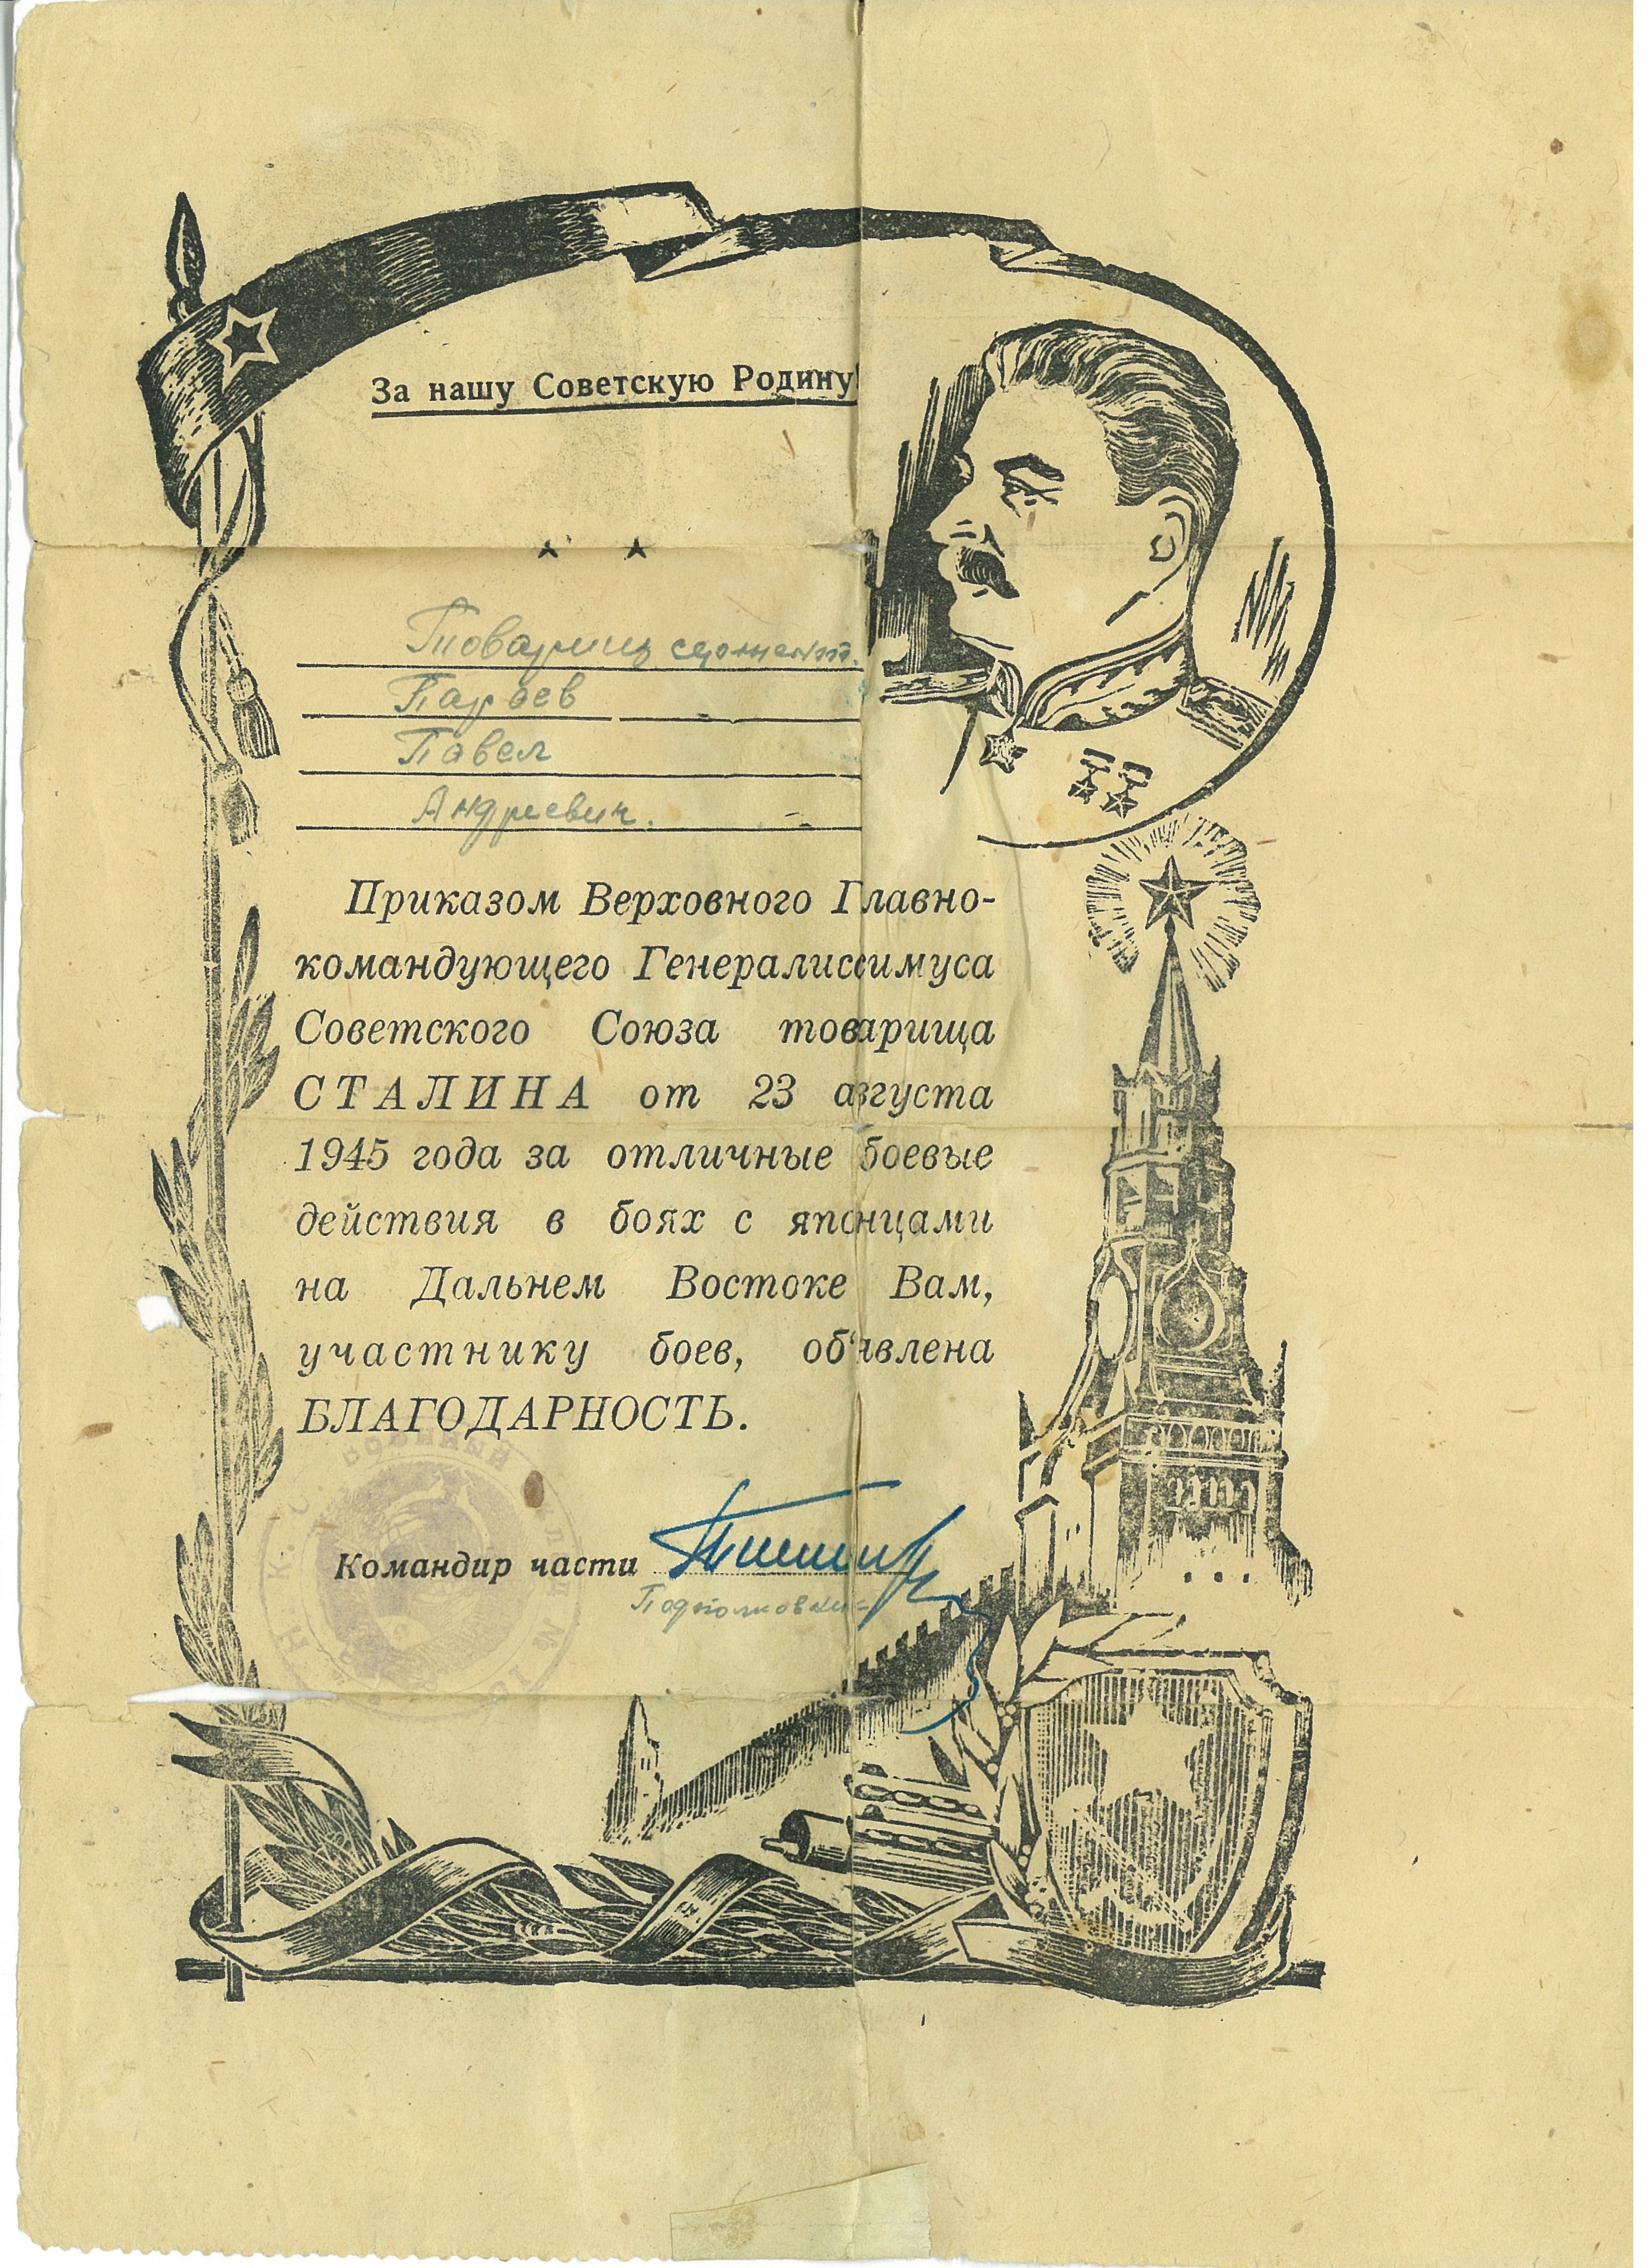 За нашу Советскую Родину!
Товарищ сержант.
Павел
Андреевич.
Приказом Верховного Главно-
командующего Генералиссимуса
Советского Союза товарища
СТАЛИНА от 23 августа
1945 года за отличные боевые
действия в боях с японцами
на Дальнем Востоке Вам,
участнику боев, об‘явлена
БЛАГОДАРНОСТЬ.
Командир части
Подполковник